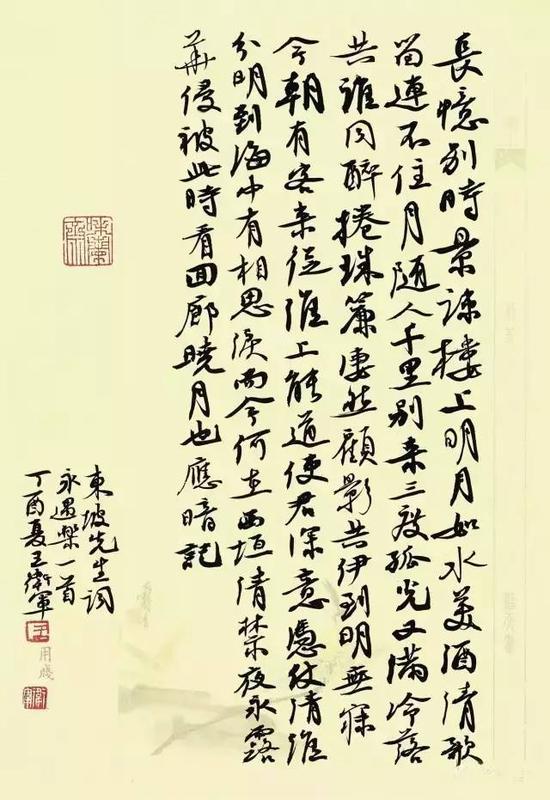 長憶別時景疎樓上明月如水美酒清歌
留連不住月隨人千里別来三度孤光又滿冷落
共誰同醉捲珠簾凄然顧影共伊到明無寐
今朝有客来從濉上能道使君深意憑仗清淮
分明到海中有相思淚而今何在西垣清禁夜永露
華侵被此時看囬廊曉月也應暗記
東坡先生詞
永遇樂一首
丁酉夏王衛軍
用牋